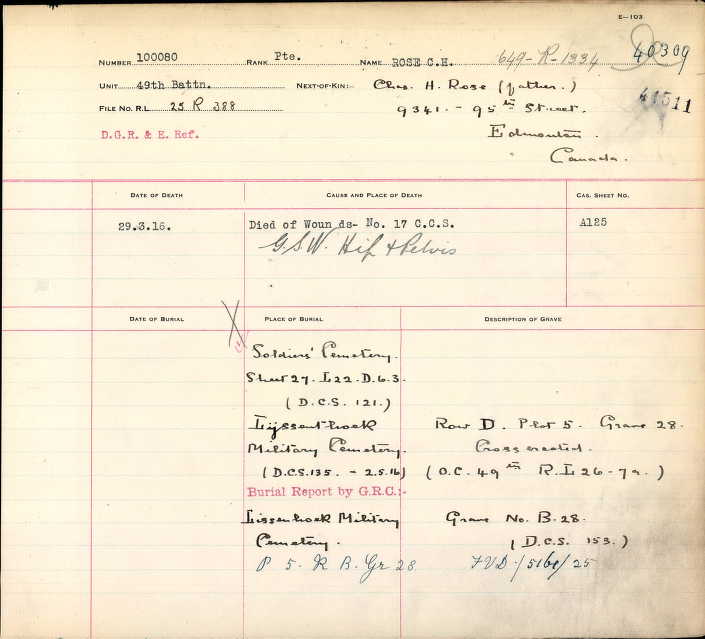 E-103
NUMBER 100080 RANK Pte. NAME ROSE C.H. 649-R-1334 40309
UNIT 49th Battn. NEXT-OF-KIN:- Chas. H. Rose (father.)
FILE NO. R.L. 25 R 388 9341. - 95th Street.
D.G.R. & E. Ref. Edmonton.
Canada.
DATE OF DEATH CAUSE AND PLACE OF DEATH CAS. SHEET NO.
29.3.16. Died of Woun ds- No. 17 C.C.S. A125
G.S.W. Hip & Pelvis
DATE OF BURIAL PLACE OF BURIAL DESCRIPTION OF GRAVE
Soldiers' Cemetery.
Sheet 27. L.22.D.6.3.
(D.C.S. 121.)
Lijssenthoek Row D. Plot 5. Grave 28.
Military Cemetery. Cross erected.
(D.C.S. 135. - 2.5.16) (O.C. 49th R.L. 26-7a.)
Burial Report by G.R.C:-
Lissenhoek Military Grave No. B.28.
Cemetery. (D.C.S. 153.)
P 5. R B. Gr 28